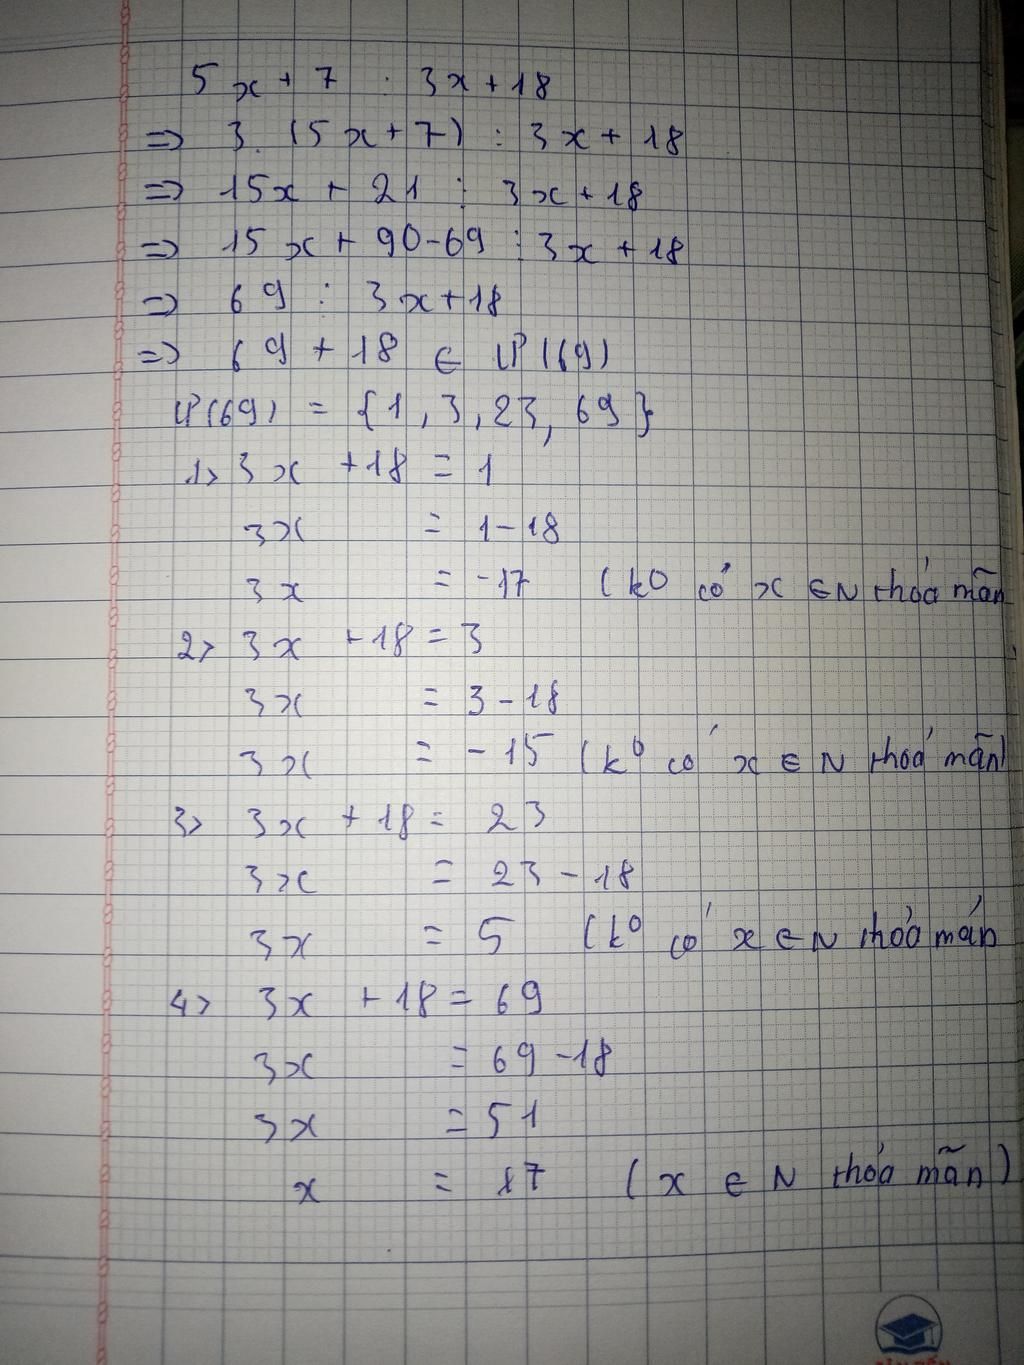 5x + 7 ⋮ 3x + 18
=> 3. (5x + 7) ⋮ 3x + 18
=> 15x + 21 ⋮ 3x + 18
=> 15x + 90 - 69 ⋮ 3x + 18
=> 69 ⋮ 3x + 18
=> 69 + 18 ∈ Ư(69)
Ư(69) = {1, 3, 23, 69}
1> 3x + 18 = 1
3x = 1 - 18
3x = -17 (k⁰ có x ∈ N thỏa mãn
2> 3x + 18 = 3
3x = 3 - 18
3x = - 15 (k⁰ có x ∈ N thoả mãn)
3> 3x + 18 = 23
3x = 23 - 18
3x = 5 (k⁰ có x ∈ N thỏa mán
4> 3x + 18 = 69
3x = 69 - 18
3x = 51
x = 17 (x ∈ N thỏa mãn)